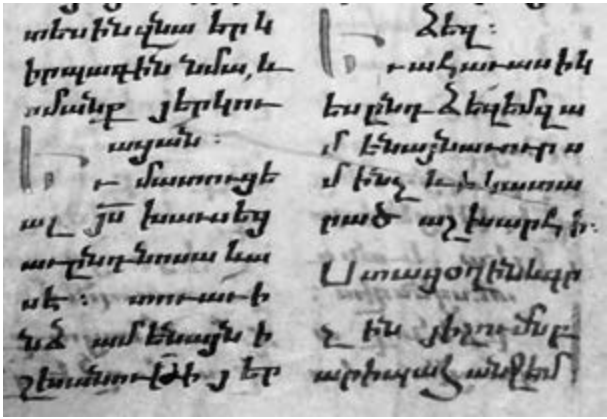 տեսին զնա երկ
իրպագին նմա, և
ոմանք յերկու
ացան։
Եւ մատուցե
ալ յս խաւսեց
աւ ընդ նոսա եւ ա
սէ։ տուաւ ի
նձ ամենայն ի
շխանութի յեր
ձեզ։
Եւ ահաւասիկ
ես ընդ ձեզ եմ զա
մենայն աւուրս
մինչ և ի կատա
րած աշխարհի։
Ստացօղ